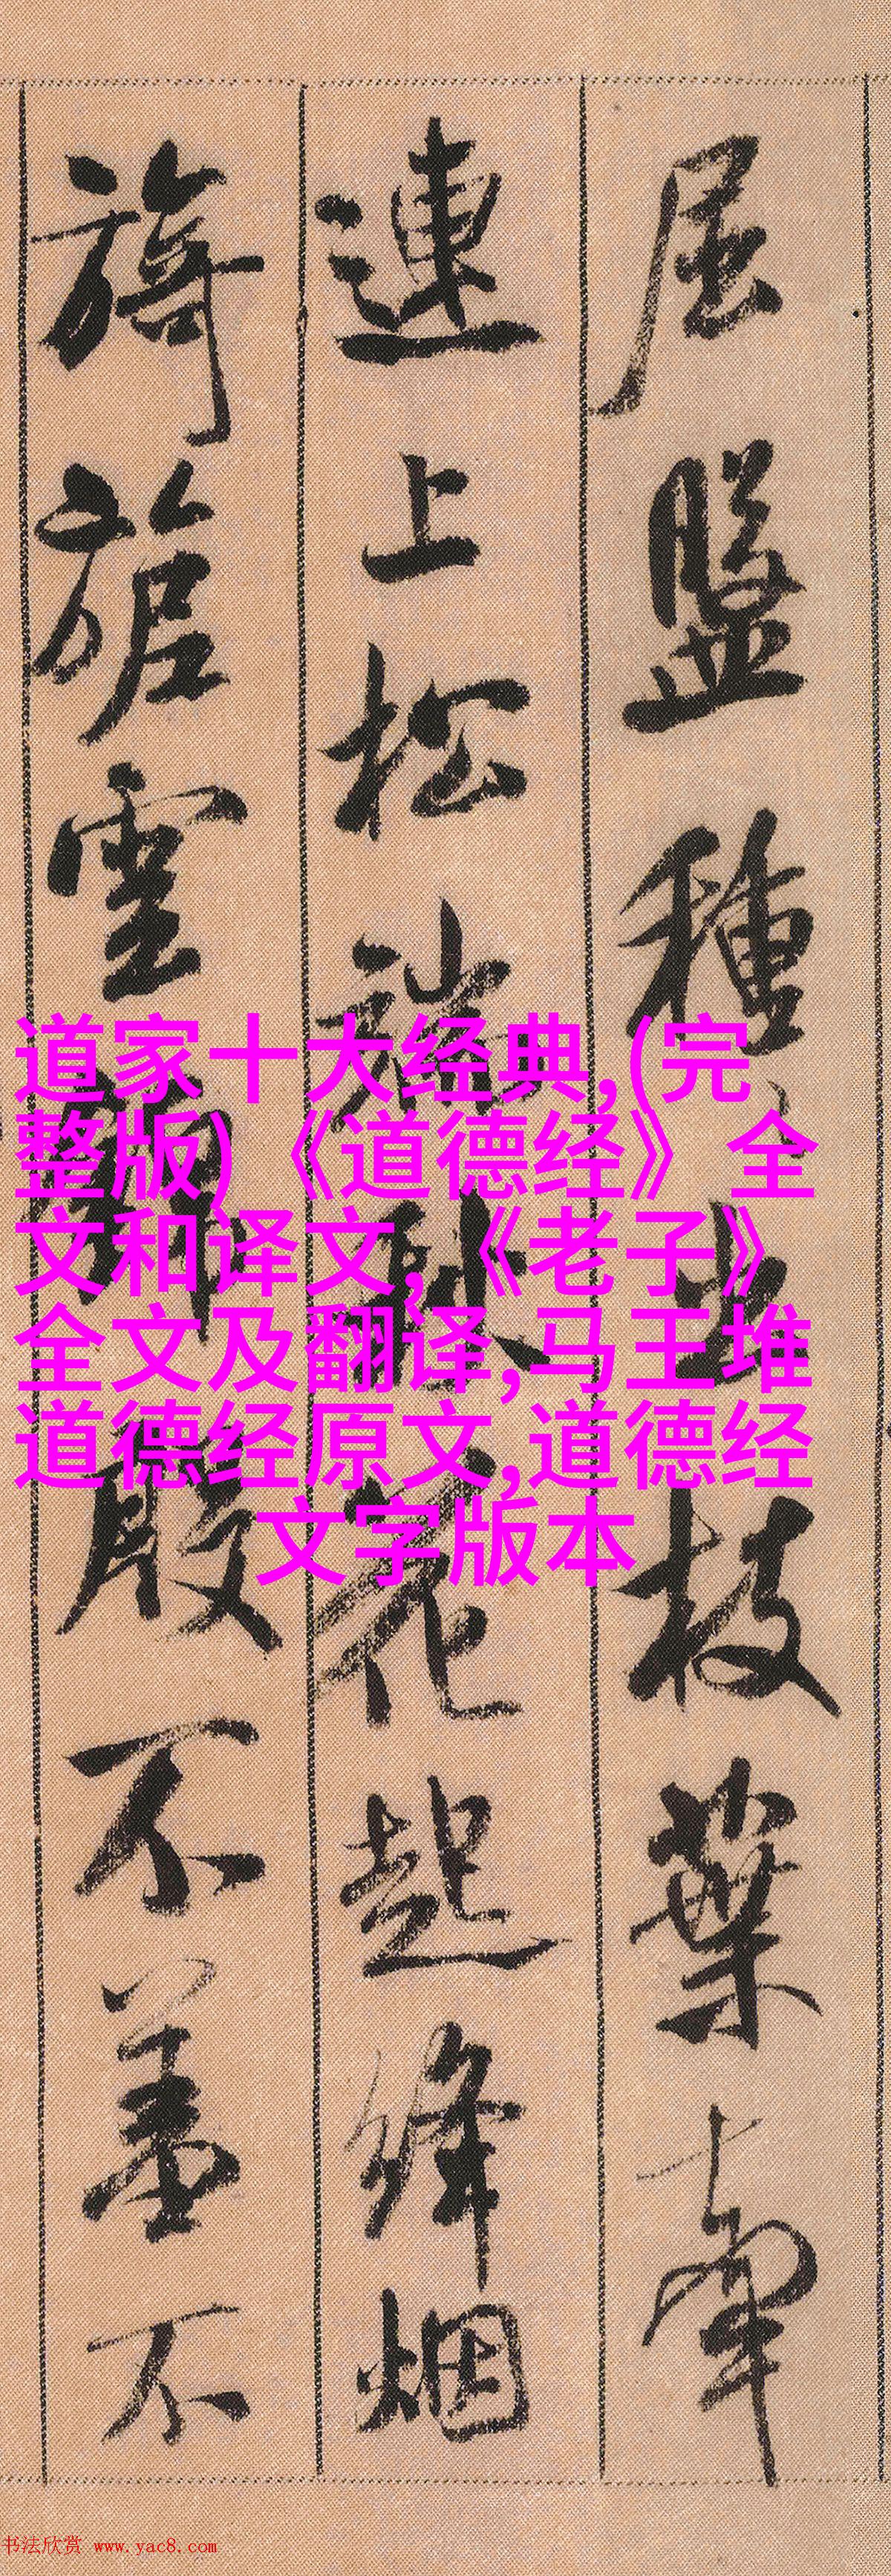 屈盤種〻出枝葉牽
連上松端秋花起絳烟
旖旎雲錦殷不羞不
道家十大经典,(完
整版)《道德经》全
文和译文,《老子》
全文及翻译,马王堆
道德经原文,道德经
文字版本
书法欣赏 www.yac8.com